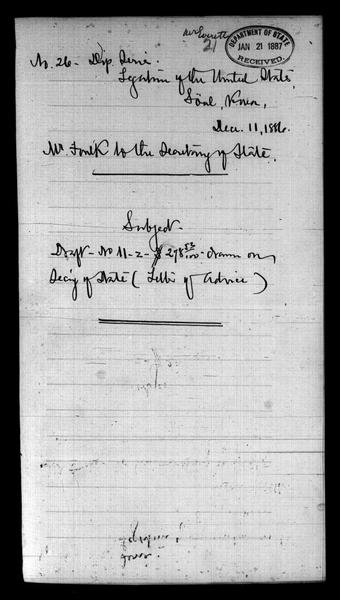 21
DEPARTMENT OF STATE
JAN 21 1887
RECEIVED.
No. 26 - Dip. Serie.
Legation of the United States,
Söul, Korea,
Dec. 11, 1886.
Mr. Foulk to the Secretary of State.
Subject.
Draft - No 11-2 - $ 278 52/100 - drawn on
Sec'y of State ( Letter of Advice )